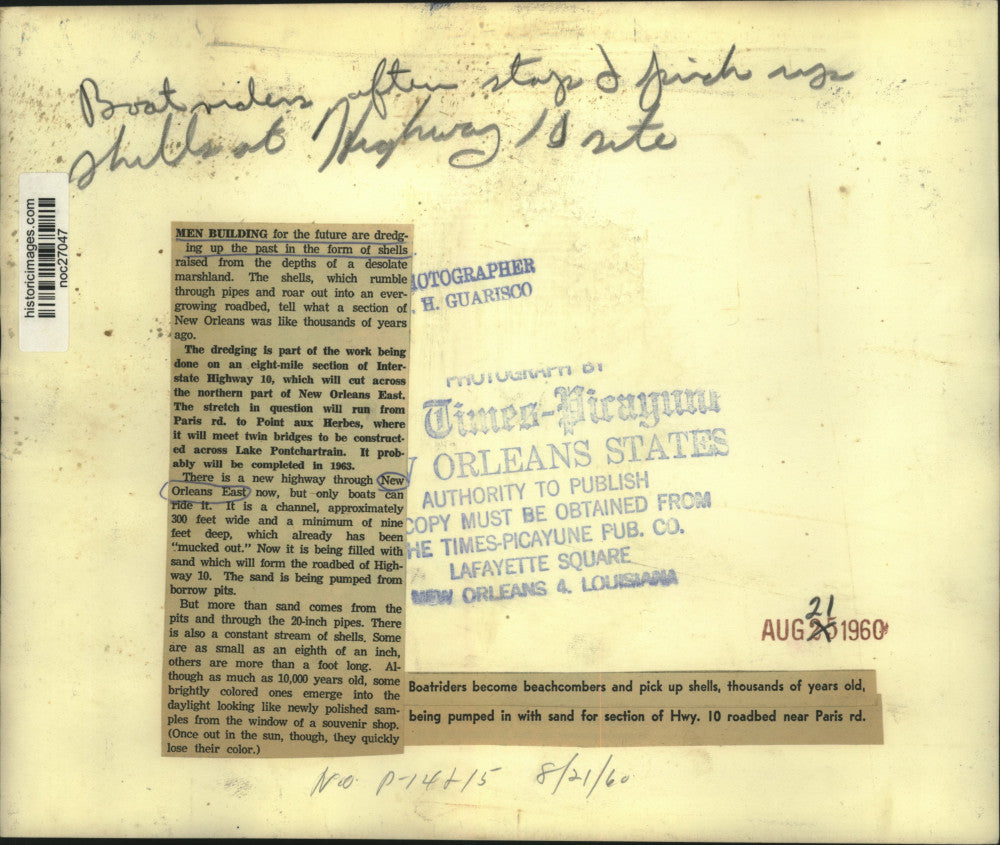 Boatriders often stop & pick up
shells at Highway 10 site
historicimages.com
noc27047
MEN BUILDING for the future are dredg-
ing up the past in the form of shells
raised from the depths of a desolate
marshland. The shells, which rumble
through pipes and roar out into an ever-
growing roadbed, tell what a section of
New Orleans was like thousands of years
ago.
The dredging is part of the work being
done on an eight-mile section of Inter-
state Highway 10, which will cut across
the northern part of New Orleans East.
The stretch in question will run from
Paris rd. to Point aux Herbes, where
it will meet twin bridges to be construct-
ed across Lake Pontchartrain. It prob-
ably will be completed in 1963.
There is a new highway through New
Orleans East now, but only boats can
ride it. It is a channel, approximately
300 feet wide and a minimum of nine
feet deep, which already has been
"mucked out." Now it is being filled with
sand which will form the roadbed of High-
way 10. The sand is being pumped from
borrow pits.
But more than sand comes from the
pits and through the 20-inch pipes. There
is also a constant stream of shells. Some
are as small as an eighth of an inch,
others are more than a foot long. Al-
though as much as 10,000 years old, some
brightly colored ones emerge into the
daylight looking like newly polished sam-
ples from the window of a souvenir shop.
(Once out in the sun, though, they quickly
lose their color.)
OTOGRAPHER
. H. GUARISCO
PHOTOGRAPH BY
Times-Picayune
ORLEANS STATES
AUTHORITY TO PUBLISH
COPY MUST BE OBTAINED FROM
HE TIMES-PICAYUNE PUB. CO.
LAFAYETTE SQUARE
NEW ORLEANS 4, LOUISIANA
21
AUG 25 1960
Boatriders become beachcombers and pick up shells, thousands of years old,
being pumped in with sand for section of Hwy. 10 roadbed near Paris rd.
N.O. P-14 8/21/60